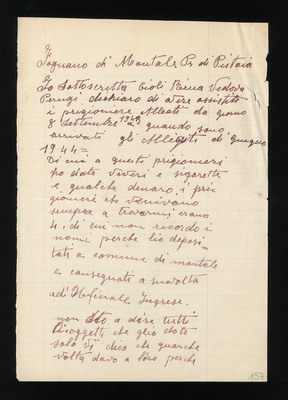 Fognano di Montale Pr di Pistoia
Io Sottoscritta Cioli Rina Vedova
Perugi dichiaro di avere assistiti
i prigioniere Alleati da giorno
8 Settembre 1943 a quando sono
arrivati gli Alleati di giugno
1944=
Di cui a questi prigionieri
ho dato viveri e sigarette
e qualche denaro, i prigionieri che venivano
sempre a trovarmi erano
4, di cui non ricordo i
nome perche lio deposi-
tati a comune di montale
e consegnati a suavolta
adi Huficiale Ingrese.
non sto a dire tutti
Cisoggetti che glio dato
solo vi dico che quarche
volta davo a loro perche
157